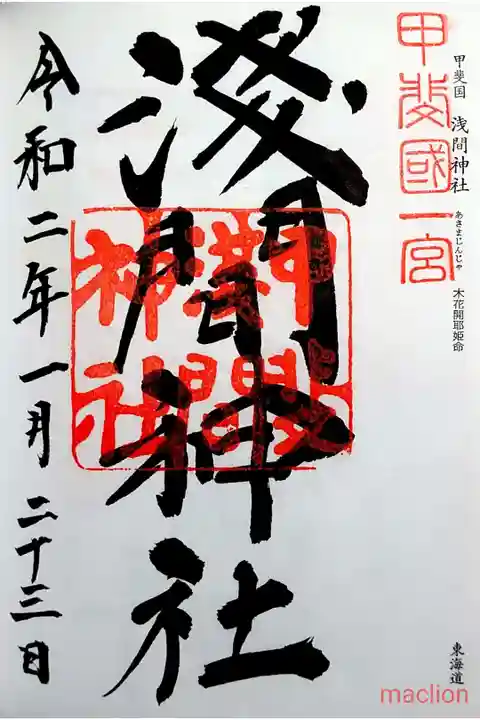 甲斐國一宮
甲斐国 浅間神社 あさまじんじゃ 木花開耶姫命
淺間神社
令和二年一月二十三日
東海道
maclion